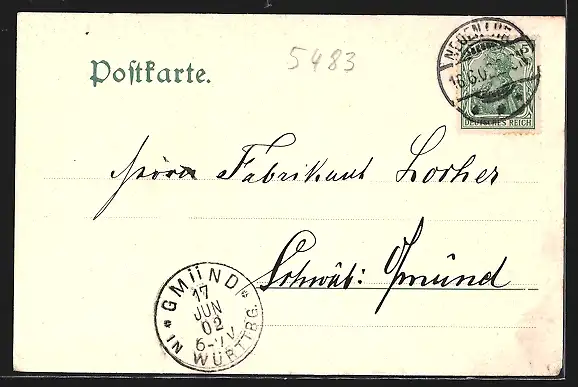 Postkarte.
5483
16.6.0
DEUTSCHES REICH
Herrn Fabrikant Locher
Schwäb: Gmünd
GMÜND
17
JUN
02
6-7V
IN WÜRTTBG.